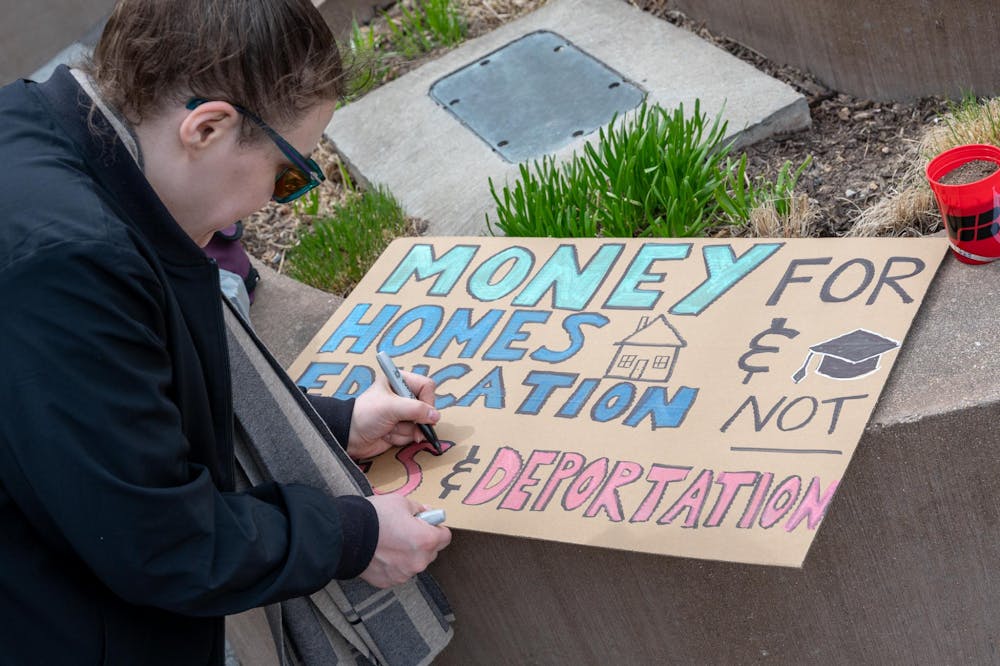 MONEY FOR
HOMES &
EDUCATION NOT
& DEPORTATION